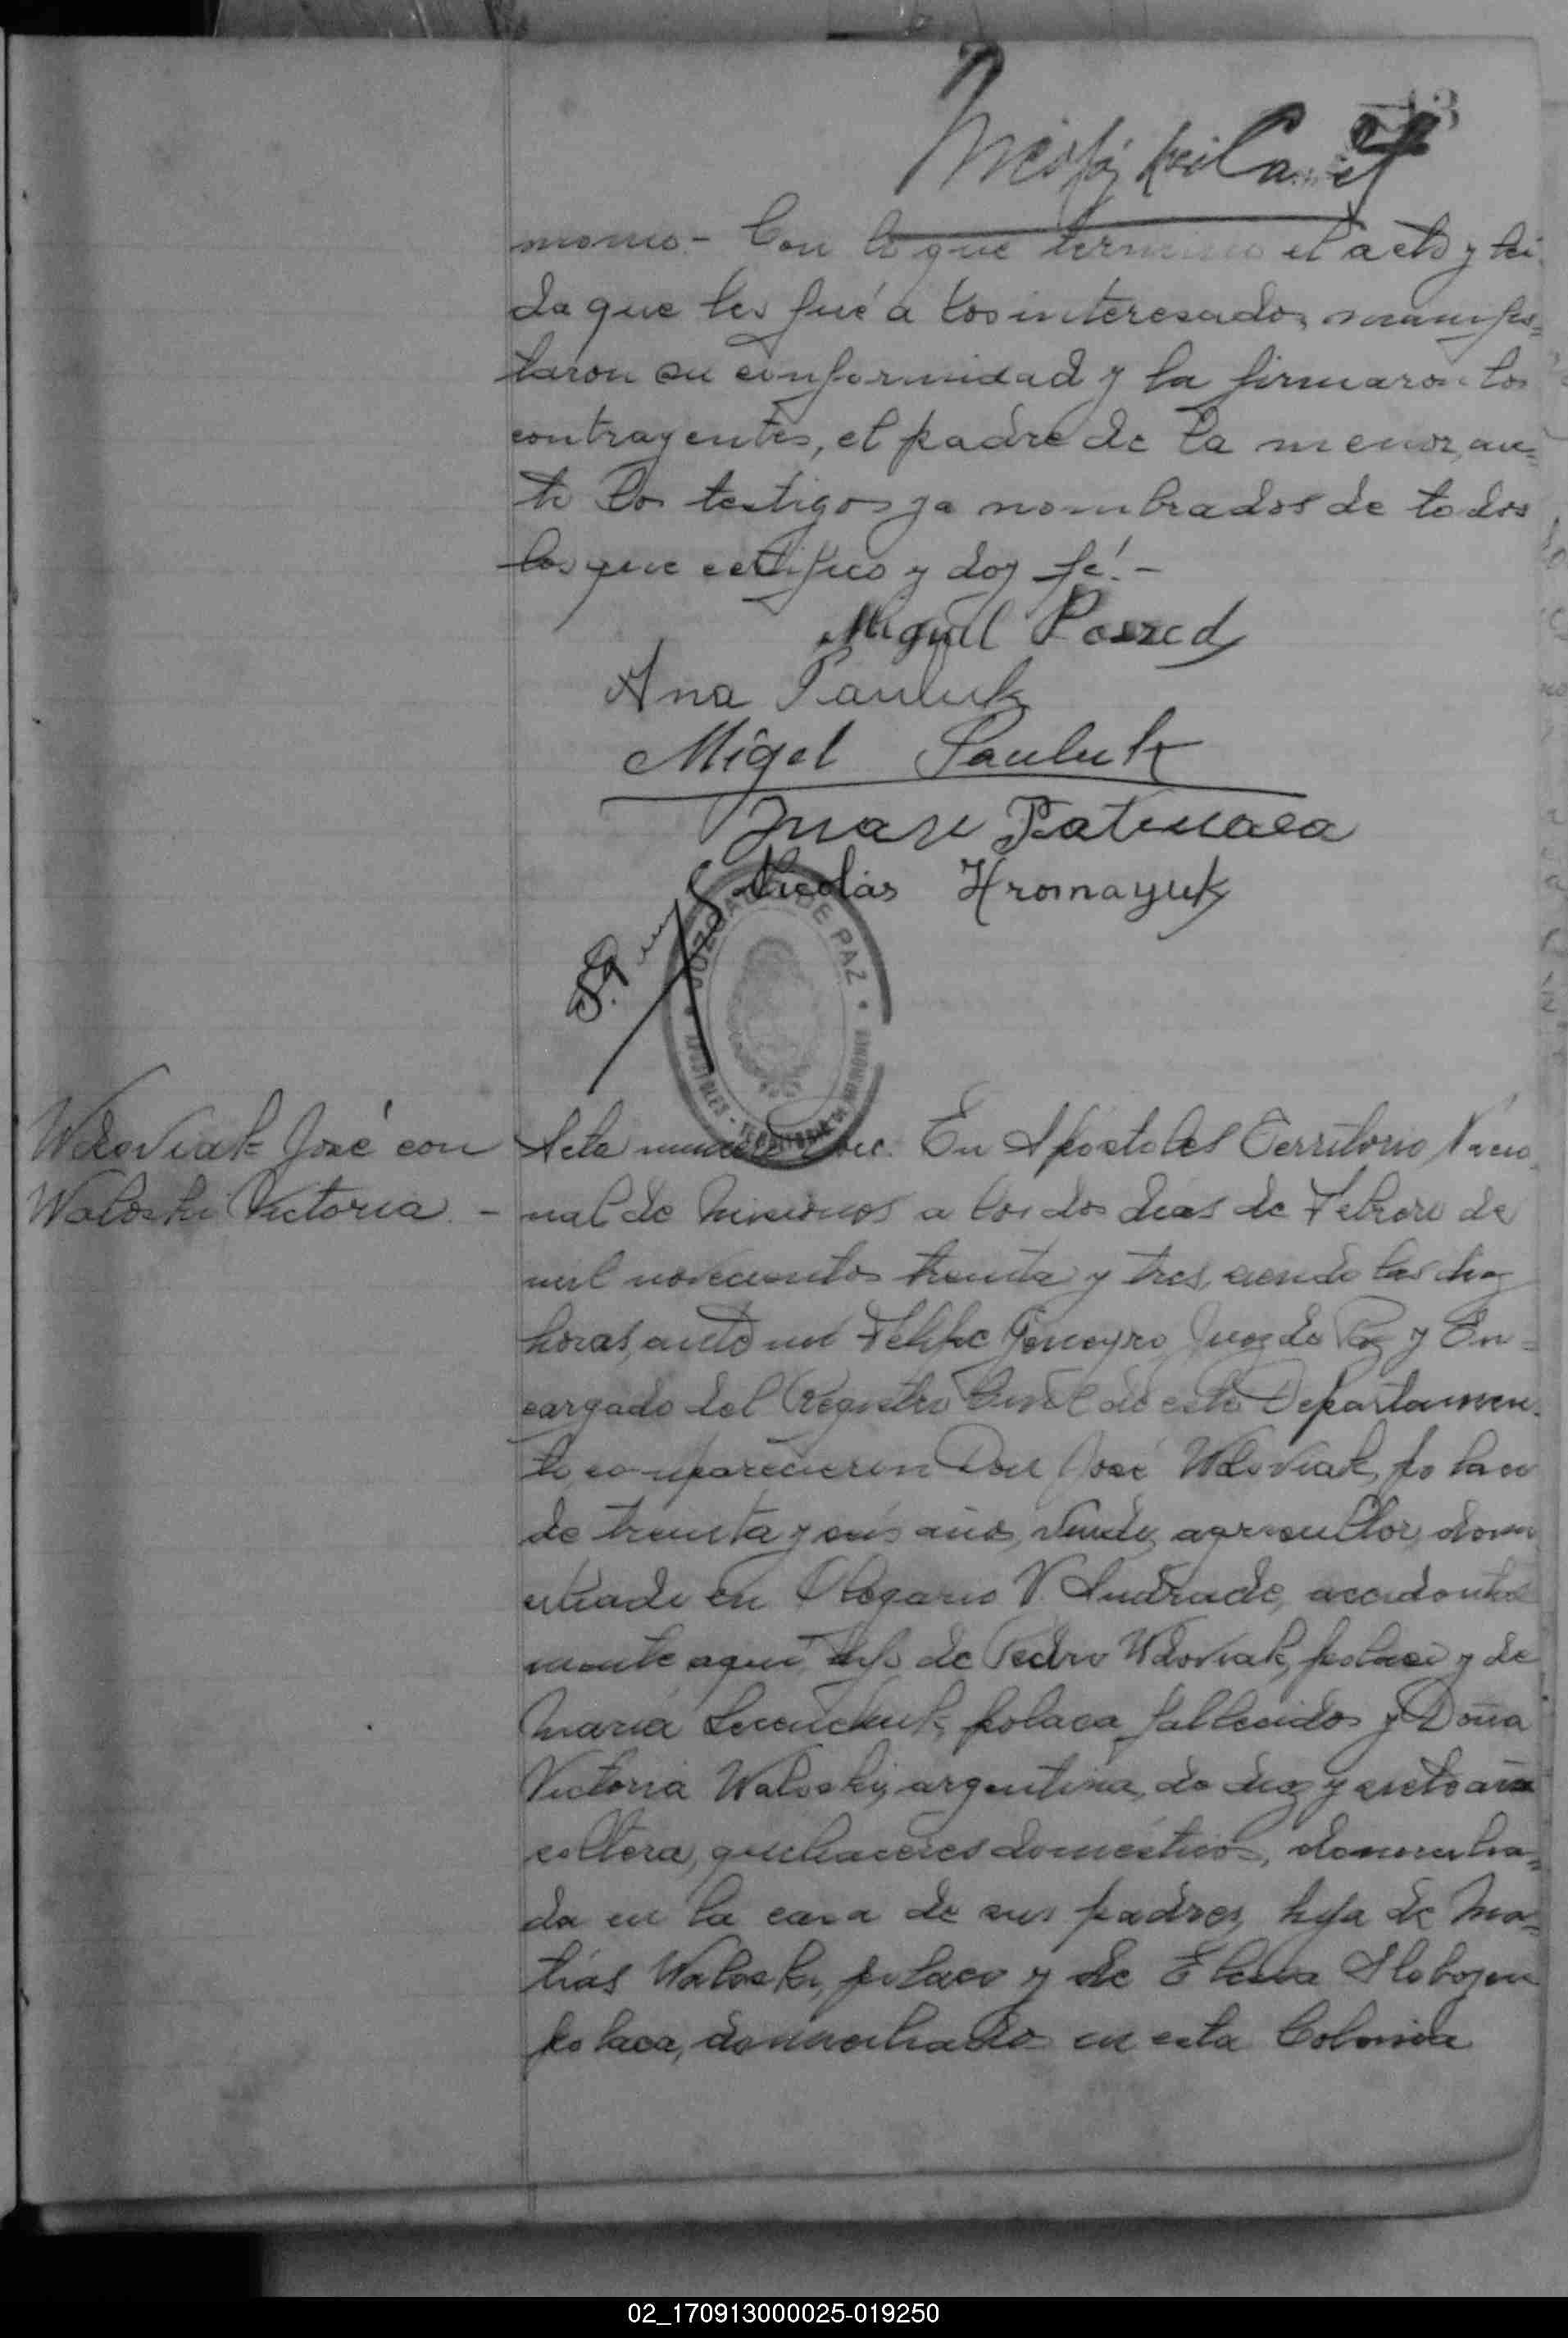 monio - Con lo que termino el acto y lei
da que les fué a los interesados, manifes=
taron su conformidad y la firmaron los
contrayentes, el padre de la menor, an=
te los testigos ya nombrados de todos
los que certifico y doy fé. -
Miguel
Ana Pauluk
Migel Pauluk
Juan
Nicolás Hromayuk
JUZGADO DE PAZ
APOSTOLES - TERRITORIO DE MISIONES
Wdoviak José con
Waloski Victoria. -
Acta numero En Apostoles Territorio Nacio
nal de Misiones a los dos dias de Febrero de
mil novecientos treinta y tres, siendo las diez
horas, ante mi Felipe Juez de Paz y En=
cargado del Registro Civil de este Departamen=
to, comparecieron Don José Wdoviak, polaco
de treinta y seis años, viudo, agricultor, domi
ciliado en Olegario V. Andrade, accidental
mente aqui, hijo de Pedro Wdoviak, polaco y de
Maria polaca, fallecidos y Doña
Victoria Waloski, argentina, de diez y siete años
soltera, quehaceres domésticos, domicilia=
da en la casa de sus padres, hija de Ma=
tías Waloski, polaco y de Elena
polaca, domiciliados en esta Colonia
02_170913000025-019250